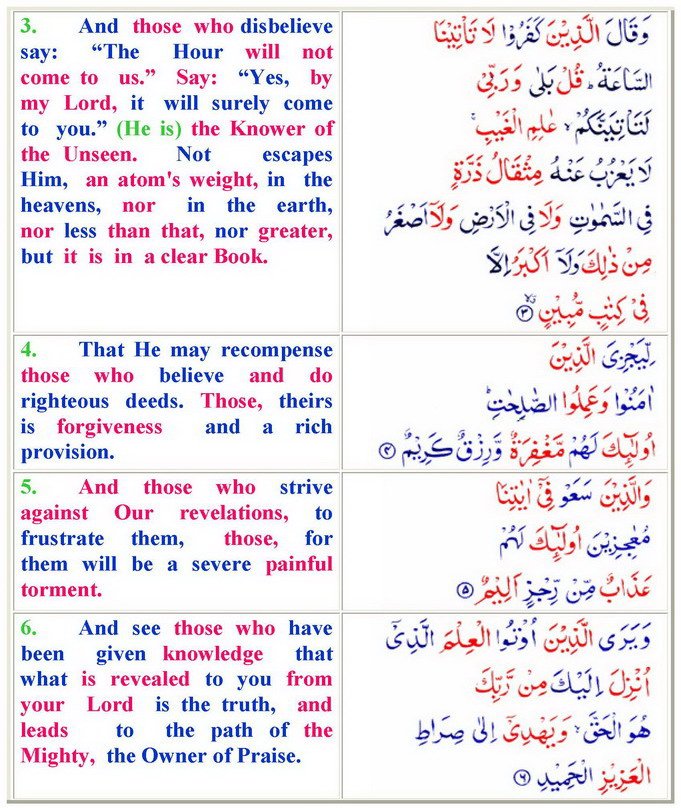 3. And those who disbelieve
say: “The Hour will not
come to us.” Say: “Yes, by
my Lord, it will surely come
to you.” (He is) the Knower of
the Unseen. Not escapes
Him, an atom's weight, in the
heavens, nor in the earth,
nor less than that, nor greater,
but it is in a clear Book.
وَقَالَ الَّذِيْنَ كَفَرُوْا لَا تَاْتِيْنَا
السَّاعَةُ ؕ قُلْ بَلٰى وَرَبِّىْ
لَتَاْتِيَنَّكُمْ ۙ عٰلِمِ الْغَيْبِ ۚ
لَا يَعْزُبُ عَنْهُ مِثْقَالُ ذَرَّةٍ
فِى السَّمٰوٰتِ وَلَا فِى الْاَرْضِ وَلَاۤ اَصْغَرُ
مِنْ ذٰلِكَ وَلَاۤ اَكْبَرُ اِلَّا
فِىْ كِتٰبٍ مُّبِيْنٍ ۙ‏ ﴿۳﴾
4. That He may recompense
those who believe and do
righteous deeds. Those, theirs
is forgiveness and a rich
provision.
لِّيَجْزِىَ الَّذِيْنَ
اٰمَنُوْا وَعَمِلُوا الصّٰلِحٰتِ ؕ
اُولٰٓٮِٕكَ لَهُمْ مَّغْفِرَةٌ وَّرِزْقٌ كَرِيْمٌ ﴿۴﴾
5. And those who strive
against Our revelations, to
frustrate them, those, for
them will be a severe painful
torment.
وَالَّذِيْنَ سَعَوْ فِىْۤ اٰيٰتِنَا
مُعٰجِزِيْنَ اُولٰٓٮِٕكَ لَهُمْ
عَذَابٌ مِّنْ رِّجْزٍ اَلِيْمٌ ﴿۵﴾
6. And see those who have
been given knowledge that
what is revealed to you from
your Lord is the truth, and
leads to the path of the
Mighty, the Owner of Praise.
وَيَرَى الَّذِيْنَ اُوْتُوا الْعِلْمَ الَّذِىْۤ
اُنْزِلَ اِلَيْكَ مِنْ رَّبِّكَ
هُوَ الْحَقَّ ۙ وَيَهْدِىْۤ اِلٰى صِرَاطِ
الْعَزِيْزِ الْحَمِيْدِ ﴿۶﴾